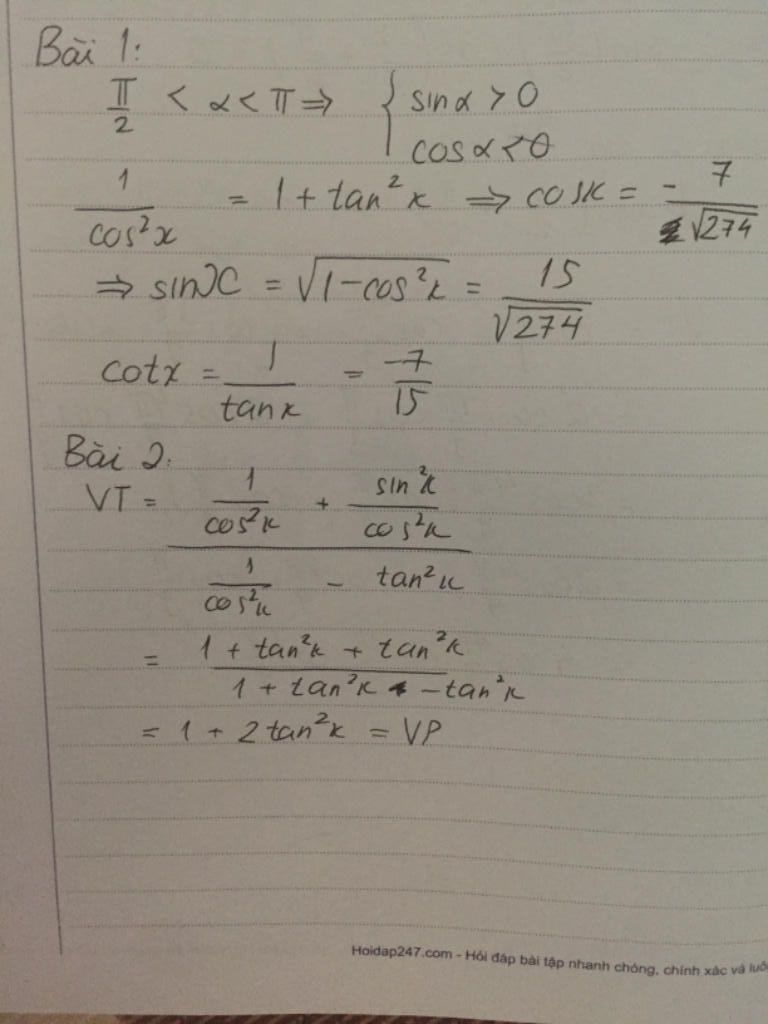 Bài 1:
π/2 < α < π ⇒ { sinα > 0
cosα < 0
1/cos²x = 1 + tan²x ⇒ cosx = - 7/√274
⇒ sinx = √(1-cos²x) = 15/√274
cotx = 1/tanx = -7/15
Bài 2:
VT = (1/cos²x + sin²x/cos²x)/(1/cos²x - tan²x)
= (1 + tan²x + tan²x)/(1 + tan²x - tan²x)
= 1 + 2tan²x = VP
Hoidap247.com - Hỏi đáp bài tập nhanh chóng, chính xác và